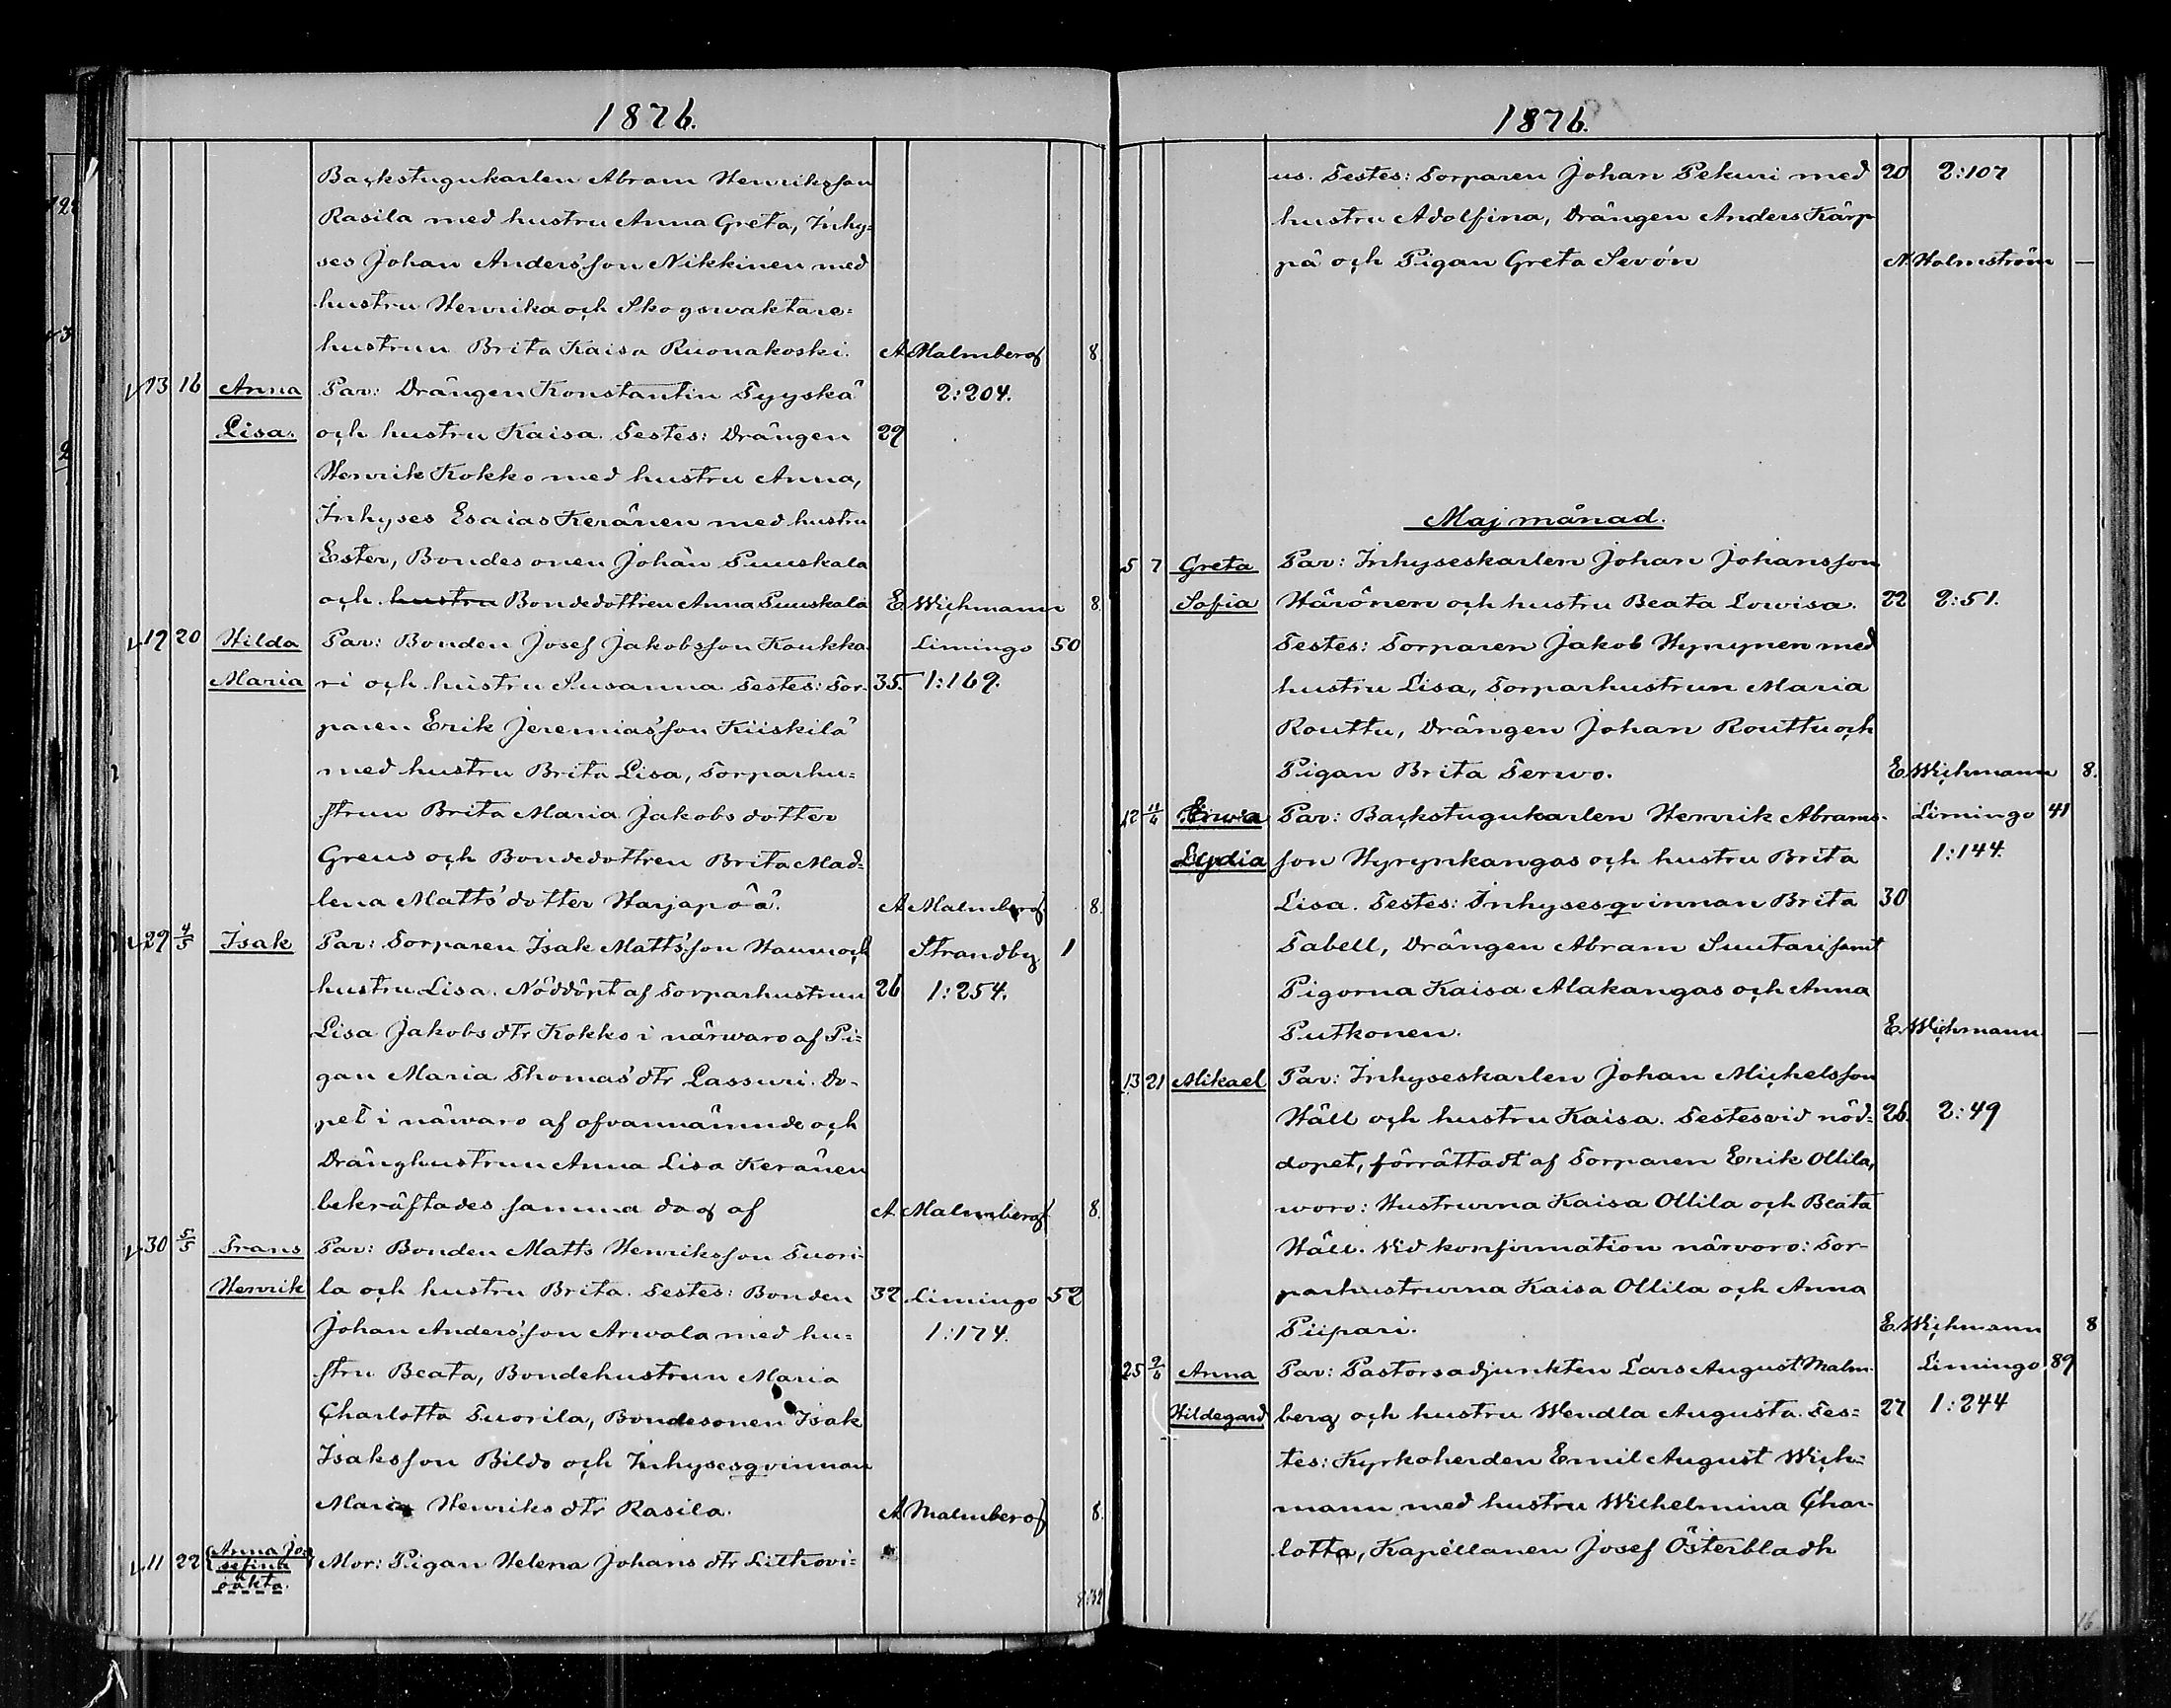 1876.
Backstugukarlen Abram Henriksson
Rasila med hustru Anna Greta, Inhy=
ses Johan Anders'son Nikkinen med
hustru Henrika och Skogswaktare=
hustrun Brita Kaisa Ruonakoski. A Malmberg 8.
13 16 Anna Par: Drängen Konstantin Tyyskä 2:204.
Lisa. och hustru Kaisa. Testes: Drängen 29
Henrik Kokko med hustru Anna,
Inhyses Esaias Keränen med hustru
Ester, Bondesonen Johan Puuskala
och hustru Bondedottren Anna Puuskala E Wichmann 8.
19 20 Hilda Par: Bonden Josef Jakobsson Koukka- Limingo 50
Maria ri och hustru Susanna Testes: Tor- 35. 1:169.
paren Erik Jeremias'son Kiiskilä
med hustru Brita Lisa, Torparhu=
strun Brita Maria Jakobsdotter
Greus och Bondedottren Brita Mad=
lena Matts'dotter Harjapää. A Malmberg 8.
29 4/5 Isak Par: Torparen Isak Matts'son Hannu och Strandby 1
hustru Lisa. Nöddöpt af Torparhustrun 26 1:254.
Lisa Jakobsdtr Kokko i närwaro af Pi=
gan Maria Thomas'dtr Lassuri. Do-
pet i närvaro af ofvannämnde och
Dränghustrun Anna Lisa Keränen
bekräftades samma dag af A. Malmberg 8.
30 5/5 Frans Par: Bonden Matts Henriksson Tuori-
Henrik la och hustru Brita. Testes: Bonden 32 Limingo 52
Johan Anders'son Arwola med hu= 1:174.
stru Beata, Bondehustrun Maria
Charlotta Tuorila, Bondesonen Isak
Isaksson Bildo och Inhysesqvinnan
Maria Henriksdtr Rasila. A Malmberg 8.
11 22 Anna Jo-
sefina Mor: Pigan Helena Johansdtr Lithovi=
oäkta.
1876.
us. Testes: Torparen Johan Pekuri med 20 2:107
hustru Adolfina, Drängen Anders Kärp
pä och Pigan Greta Sevón A. Holmström —
Maj månad.
5 7 Greta Par: Inhyseskarlen Johan Johansson
Sofia Härönen och hustru Beata Lowisa. 22 2:51.
Testes: Torparen Jakob Hyrynen med
hustru Lisa, Torparhustrun Maria
Routtu, Drängen Johan Routtu och
Pigan Brita Terwo. E. Wichmann 8.
12 11/6 Par: Backstugukarlen Henrik Abrams- Limingo 41
Lydia son Hyrynkangas och hustru Brita 1:144.
Lisa. Testes: Inhysesqvinnan Brita 30
Tabell, Drängen Abram Suutari samt
Pigorna Kaisa Alakangas och Anna
Putkonen. E. Wichmann —
13 21 Mikael Par: Inhyseskarlen Johan Michelsson
Häll och hustru Kaisa. Testes vid nöd- 26. 2:49
dopet, förrättadt af Torparen Erik Ollila,
woro: Hustrurna Kaisa Ollila och Beata
Häll. Vid konfirmation närvoro: Tor-
parhustrurna Kaisa Ollila och Anna
Piipari. E. Wichmann 8
25 9/6 Anna Par: Pastorsadjunkten Lars August Malm- Limingo 89
Hildegard berg och hustru Wendla Augusta. Tes= 27 1:244
tes: Kyrkoherden Emil August Wich=
mann med hustru Wilhelmina Char-
lotta, Kapellanen Josef Österbladh
16